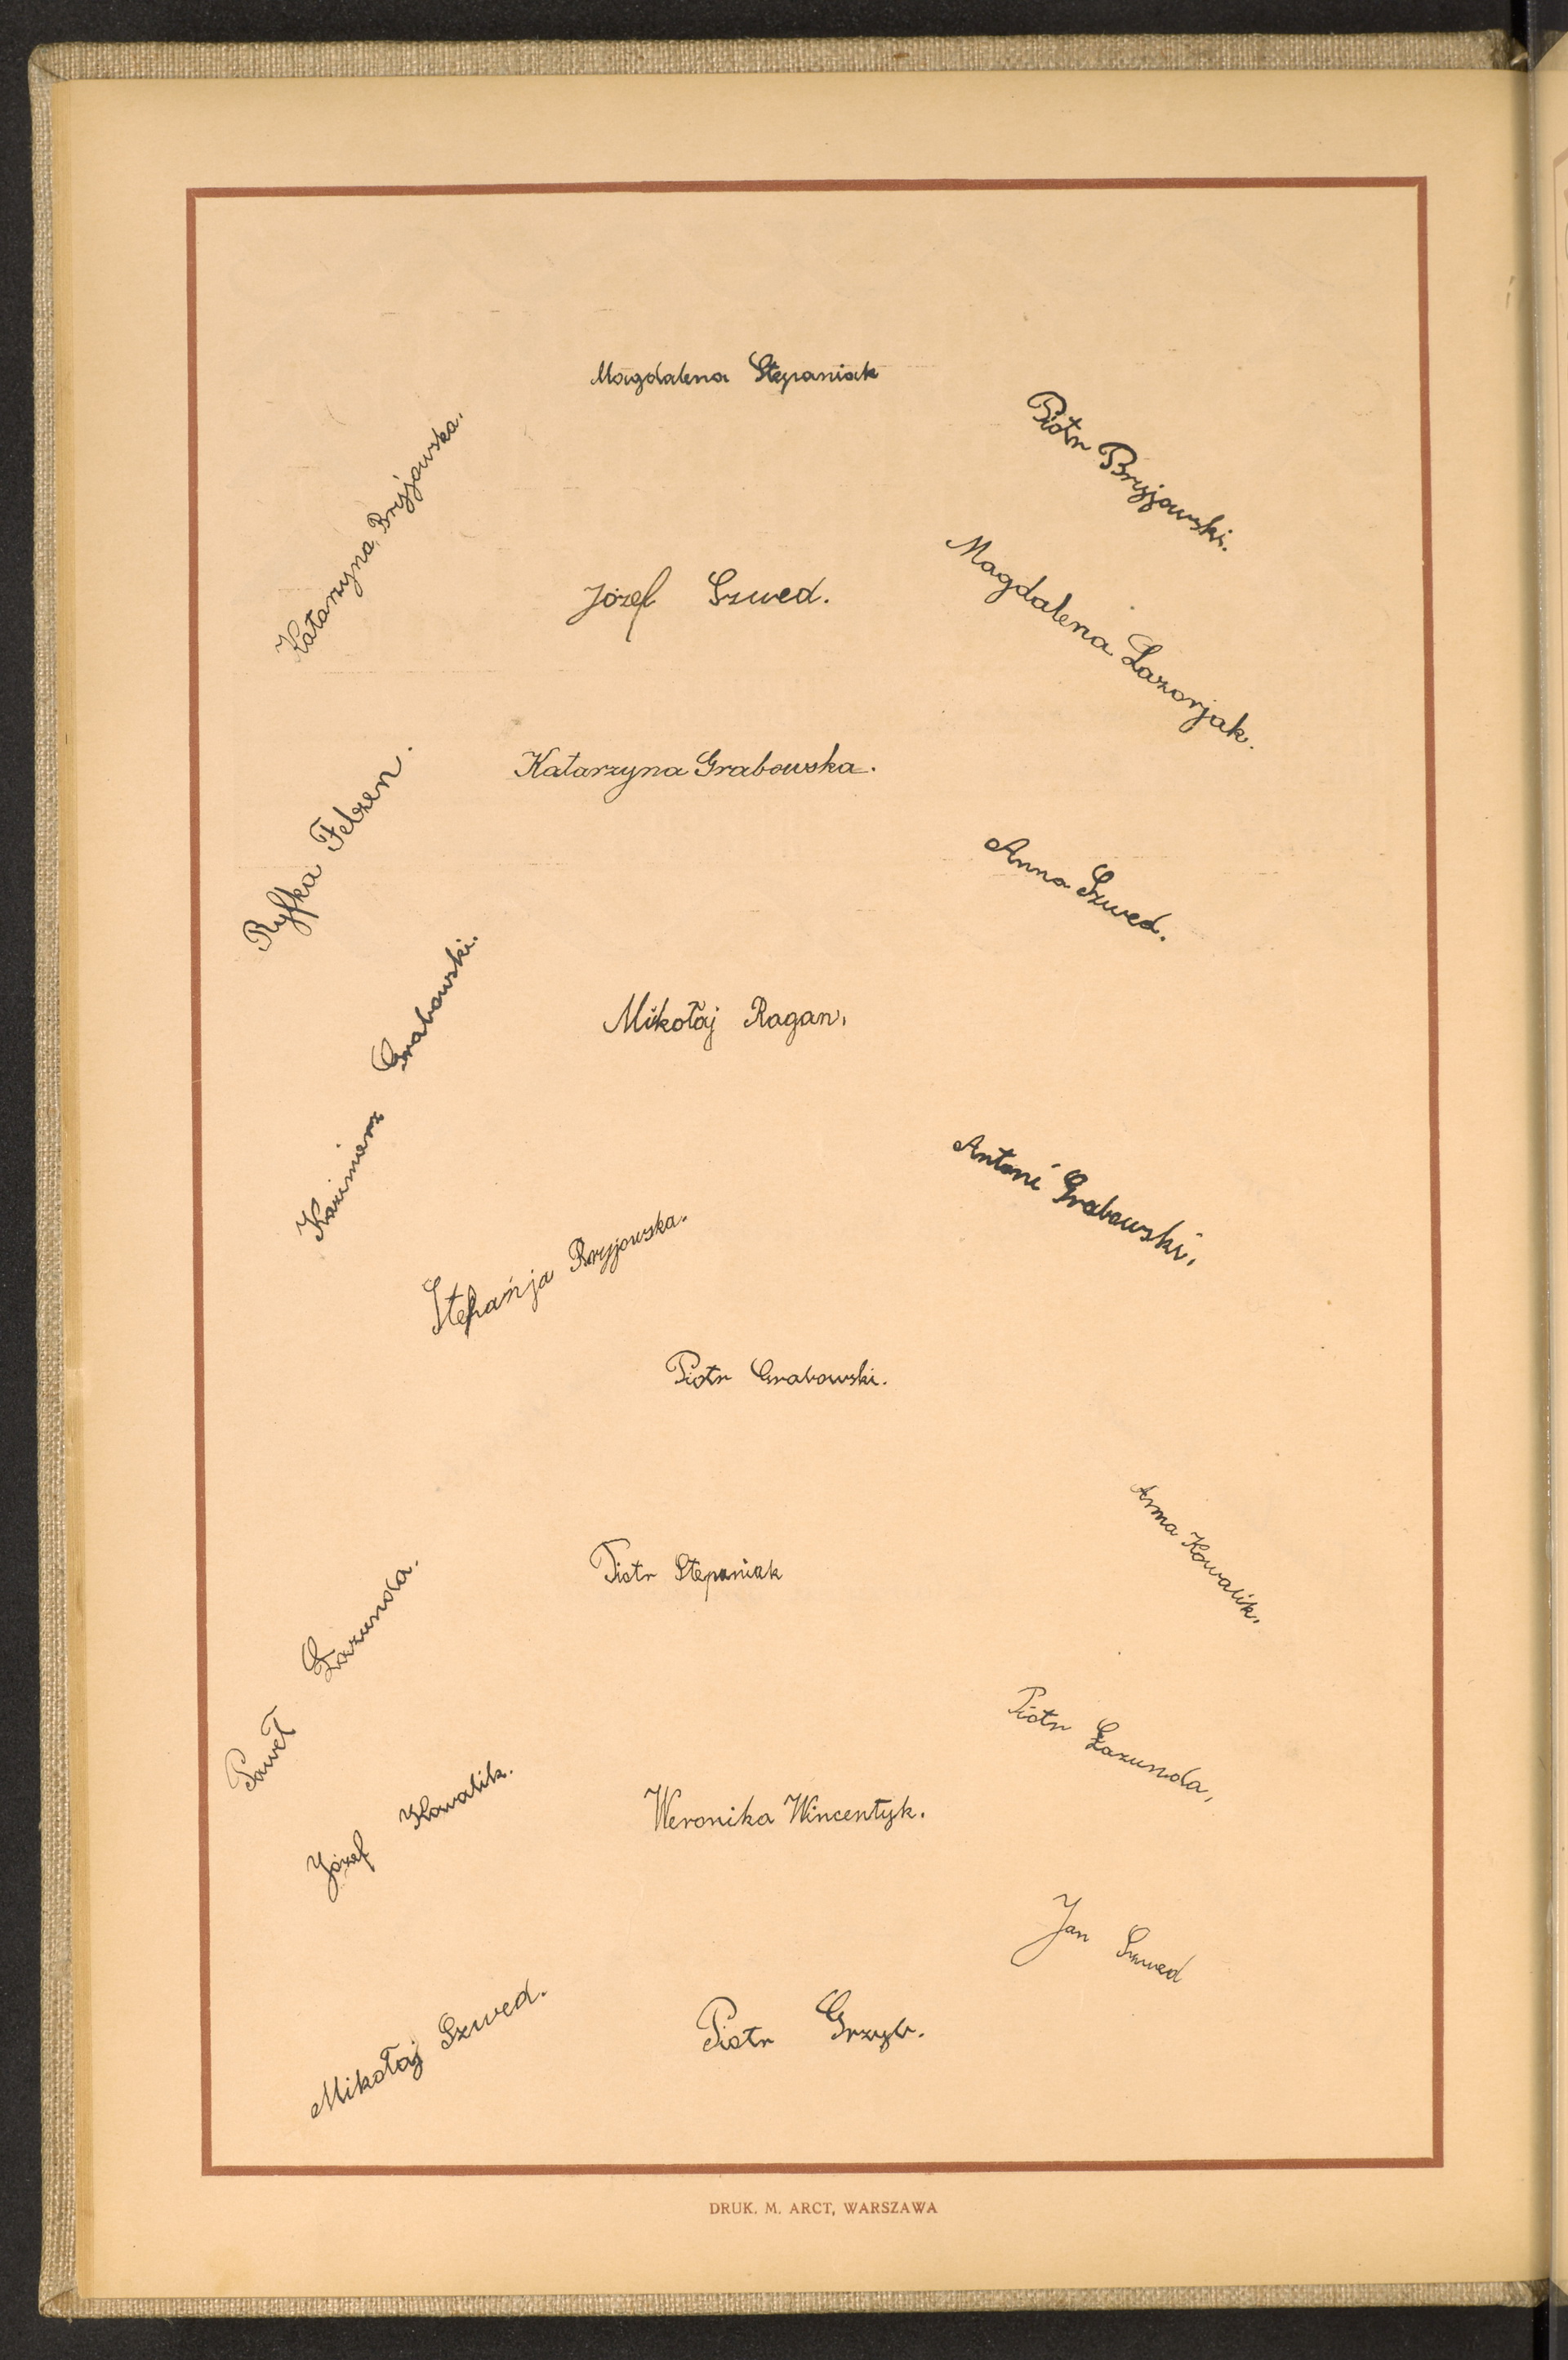 Magdalena Stepaniak
Katarzyna Bryjowska.
Piotr Bryjowski.
Józef Szwed.
Magdalena Lazorjak.
Katarzyna Grabowska.
Ryfka Felzen.
Anna Szwed.
Kazimierz Grabowski.
Mikołaj Ragan.
Antoni Grabowski.
Stefanja Bryjowska.
Piotr Grabowski.
Anna Kowalik.
Piotr Stepaniak
Paweł Łazunda.
Piotr Łazunda.
Józef Kowalik.
Weronika Wincentyk.
Jan Szwed
Mikołaj Szwed.
Piotr Grzyb.
DRUK. M. ARCT, WARSZAWA